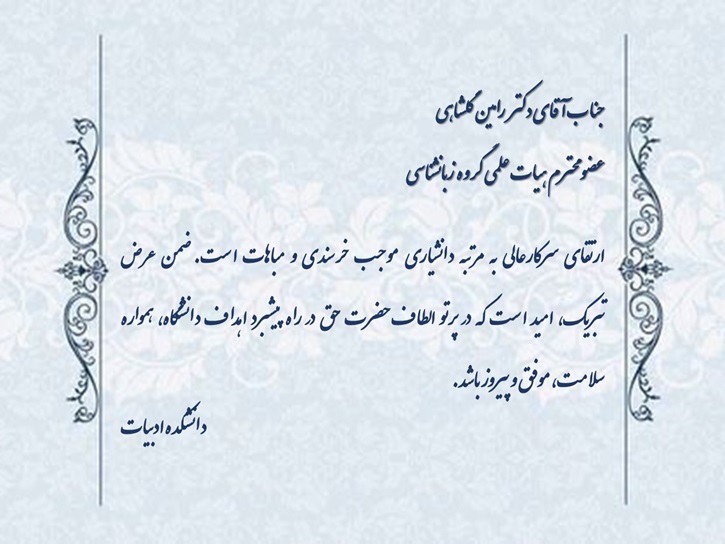 جناب آقای دکتر رامین گلشاهی
عضو محترم هیات علمی گروه زبانشناسی
ارتقای سرکارعالی به مرتبه دانشیاری موجب خرسندی و مباهات است. ضمن عرض
تبریک، امید است که در پرتو الطاف حضرت حق در راه پیشبرد اهداف دانشگاه، همواره
سلامت، موفق و پیروز باشد.
دانشکده ادبیات